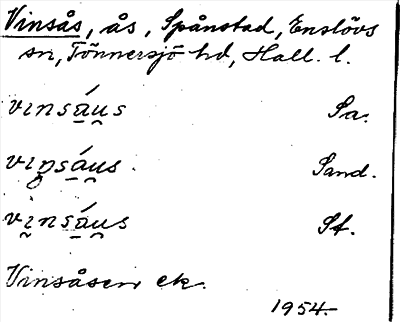 Vinsås, ås, Spånstad, Enslövs
sn, Tönnersjö hd, Hall. l.
vınsá̠u̯s Sa.
vıŋsá̠u̯s. Sand.
vı̰nsá̠u̯s St.
Vinsåsen ek.
1954.